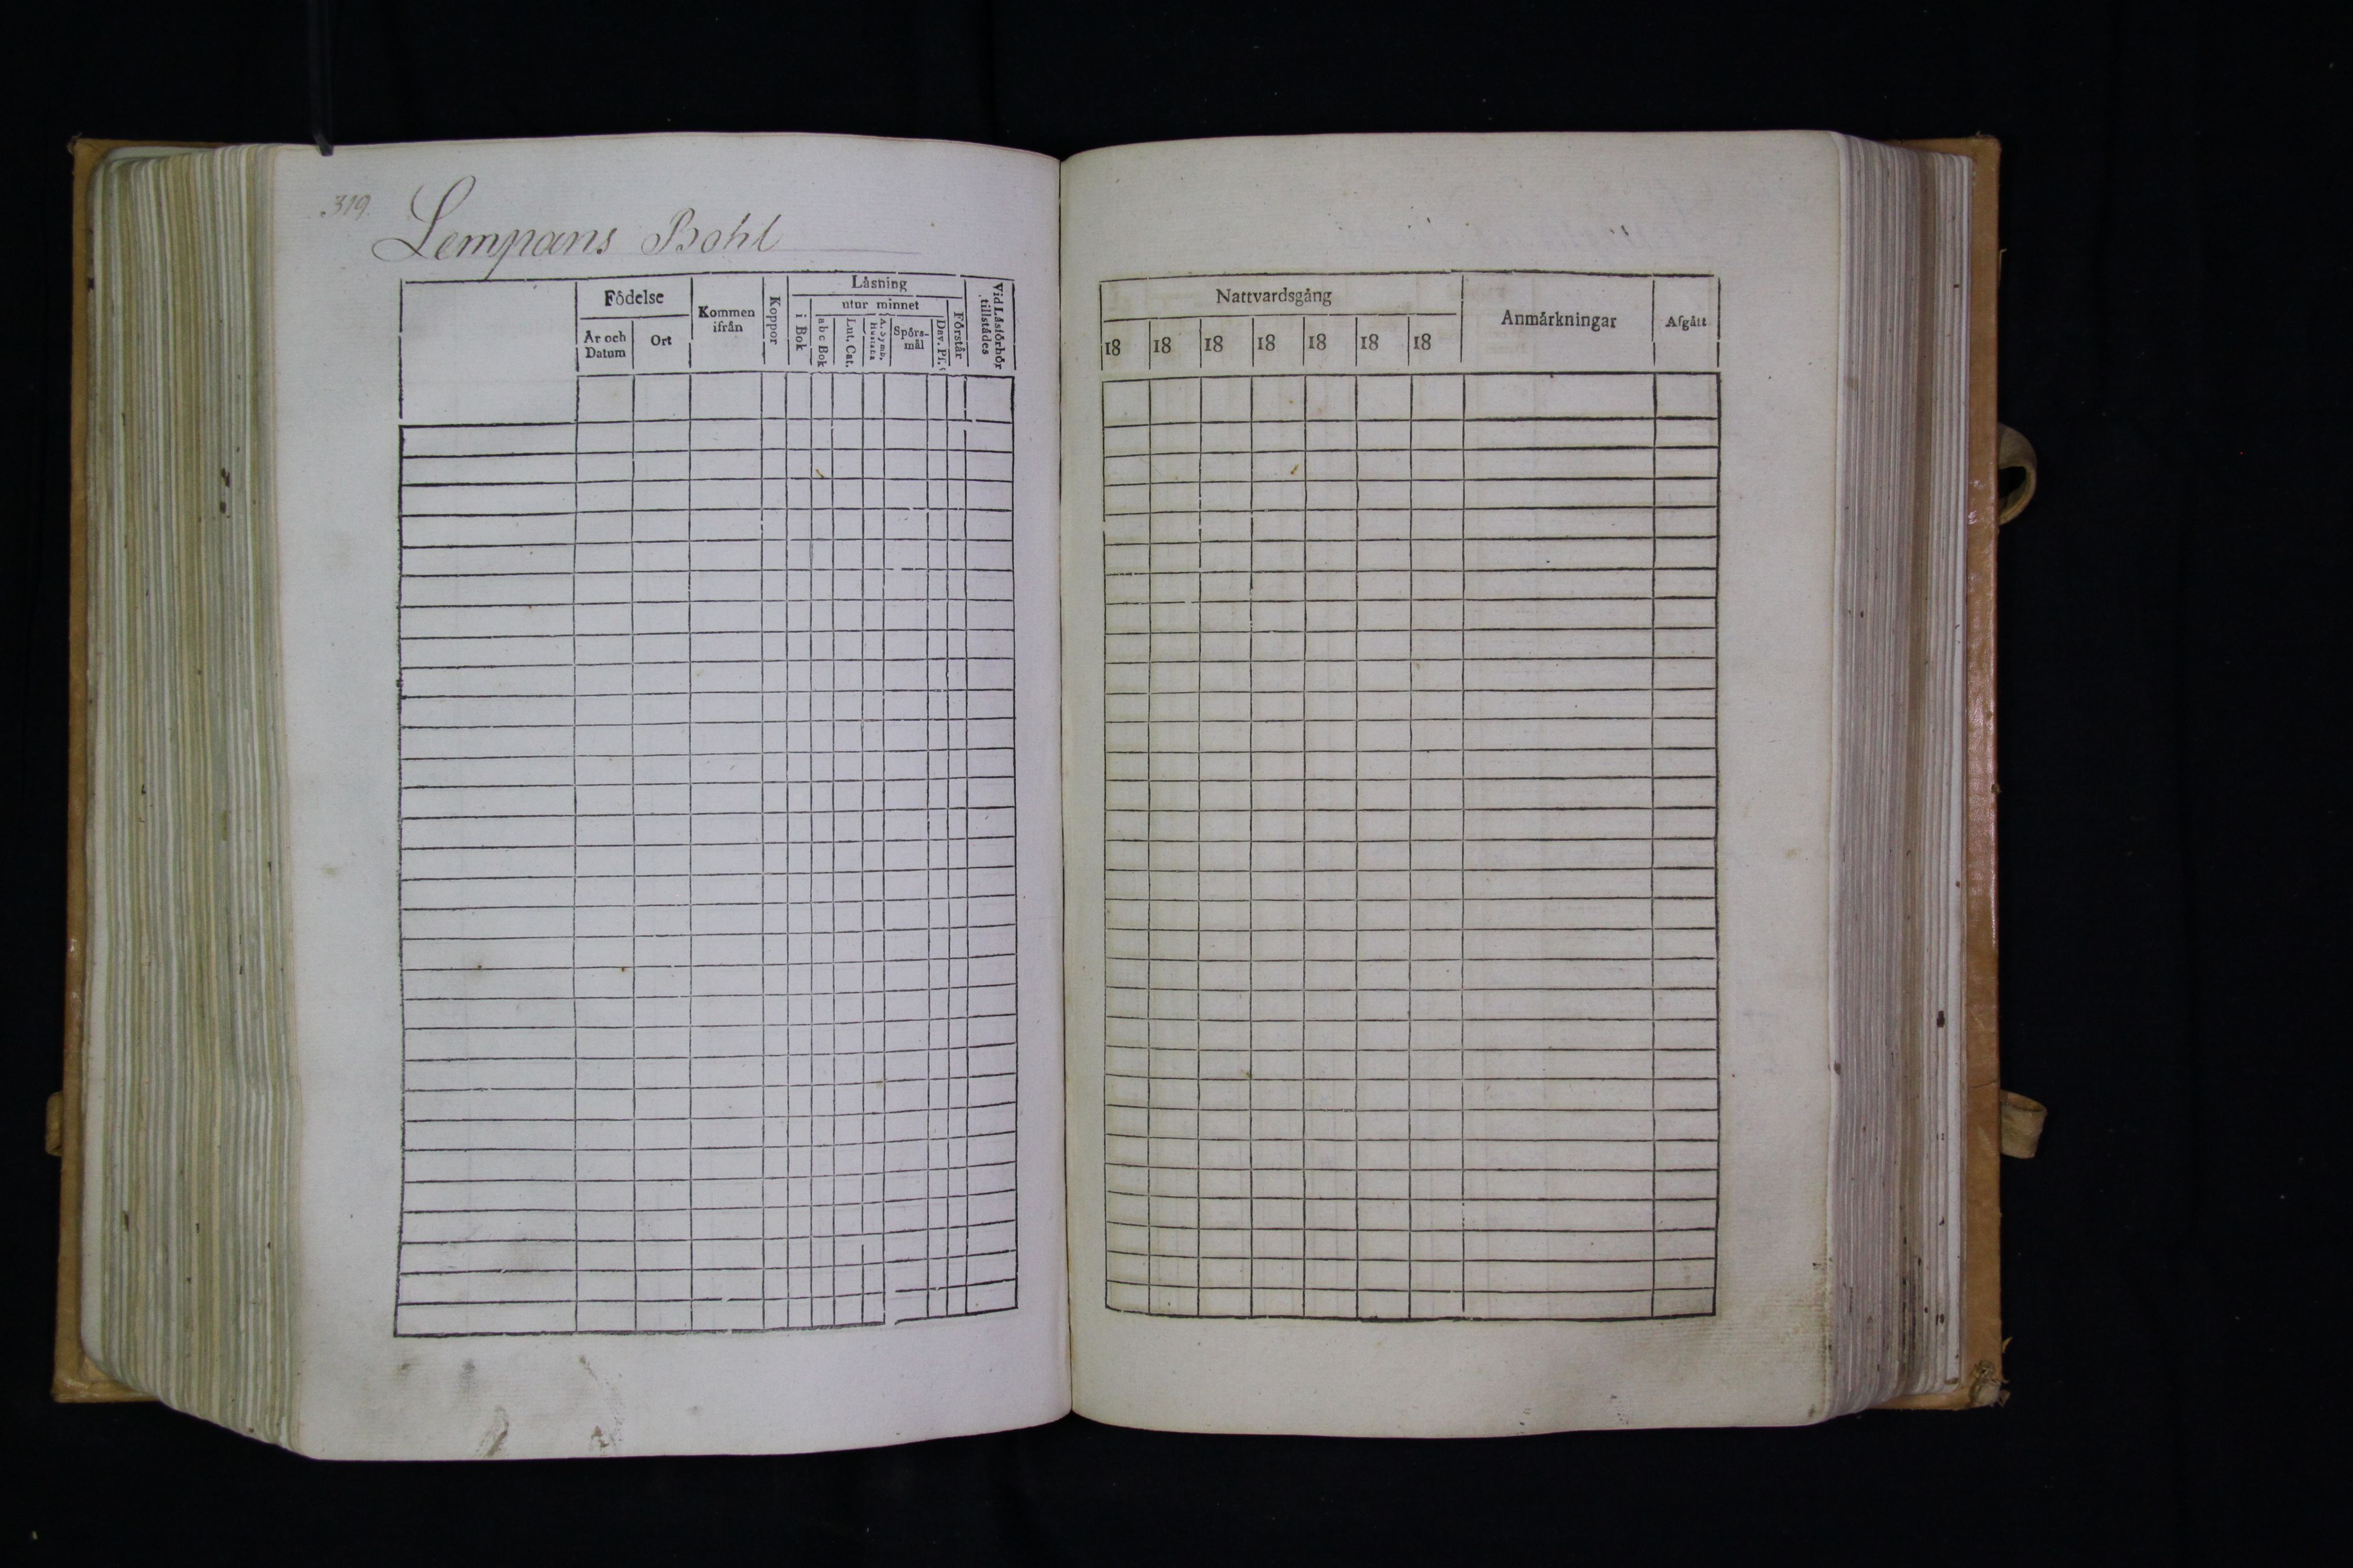 319.
Lempans Bohl
Födelse
År och Datum
Ort
Kommen ifrån
Koppor
Läsning
i Bok
utur minnet
a b c Bok
Lut. Cat.
A. Symb.
Spörsmål
Dav. Ps.
Förstår
Vid Läsförhör tillstädes
Nattvardsgång
18 18 18 18 18 18 18
Anmärkningar
Afgått